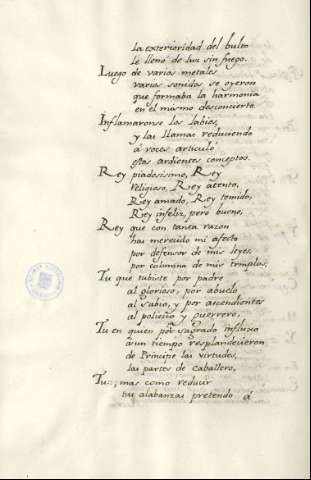 la exterioridad del bulto
le llenò de luz sin fuego.
Luego de varios metales
varios sonidos se oyeron
que formaba la harmonia
en el mismo desconcierto.
Inflamaronse los labios,
y las llamas reduciendo
à voces articulò
estos ardientes conceptos.
Rey piadosissimo, Rey
religioso, Rey atento,
Rey amado, Rey temido,
Rey infeliz, pero bueno,
Rey que con tanta razon
has merecido mi afecto
por defensor de mis leyes,
por columna de mis templos,
Tu que tubiste por padre
al glorioso, por abuelo
al sabio, y por ascendientes
al politico y guerrero,
Tu en quien por sagrado influxo
à un tiempo resplandecieron
de Principe las virtudes,
las partes de caballero,
Tu::; mas como reducir
tus alabanzas pretendo à